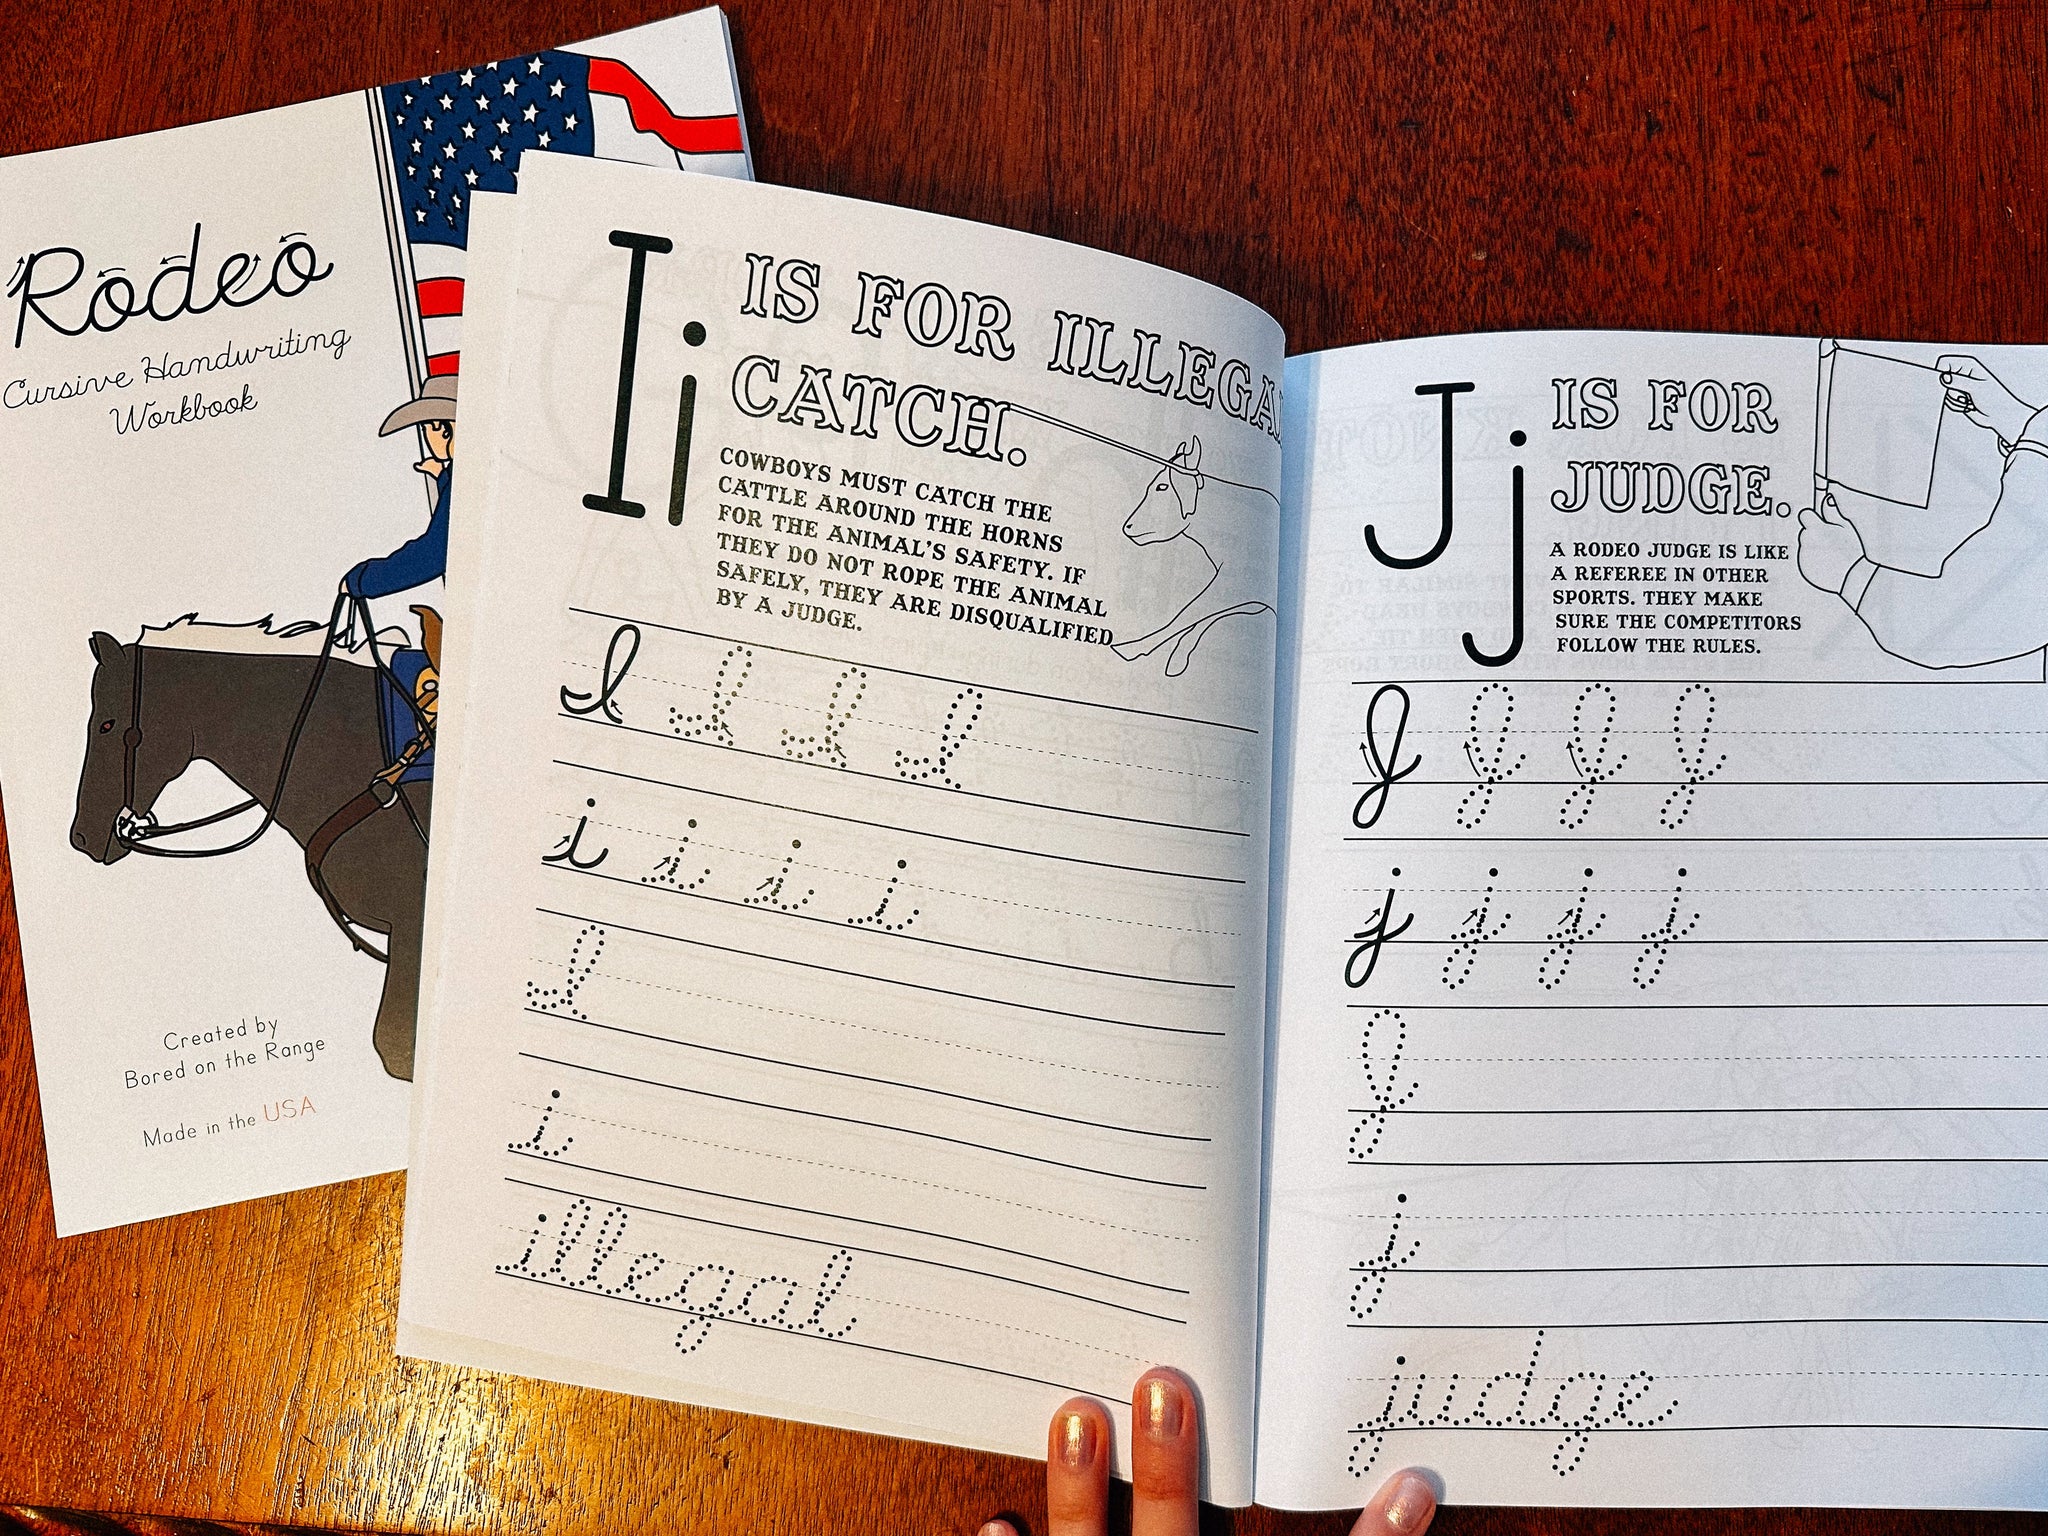 Rodeo
Cursive Handwriting
Workbook
Created by
Bored on the Range
Made in the USA
Ii
IS FOR ILLEGA
CATCH.
COWBOYS MUST CATCH THE
CATTLE AROUND THE HORNS
FOR THE ANIMAL'S SAFETY. IF
THEY DO NOT ROPE THE ANIMAL
SAFELY, THEY ARE DISQUALIFIED
BY A JUDGE.
I I I I
i i i i
I
i
illegal
Jj
IS FOR
JUDGE.
A RODEO JUDGE IS LIKE
A REFEREE IN OTHER
SPORTS. THEY MAKE
SURE THE COMPETITORS
FOLLOW THE RULES.
J J J J
j j j j
J
j
judge